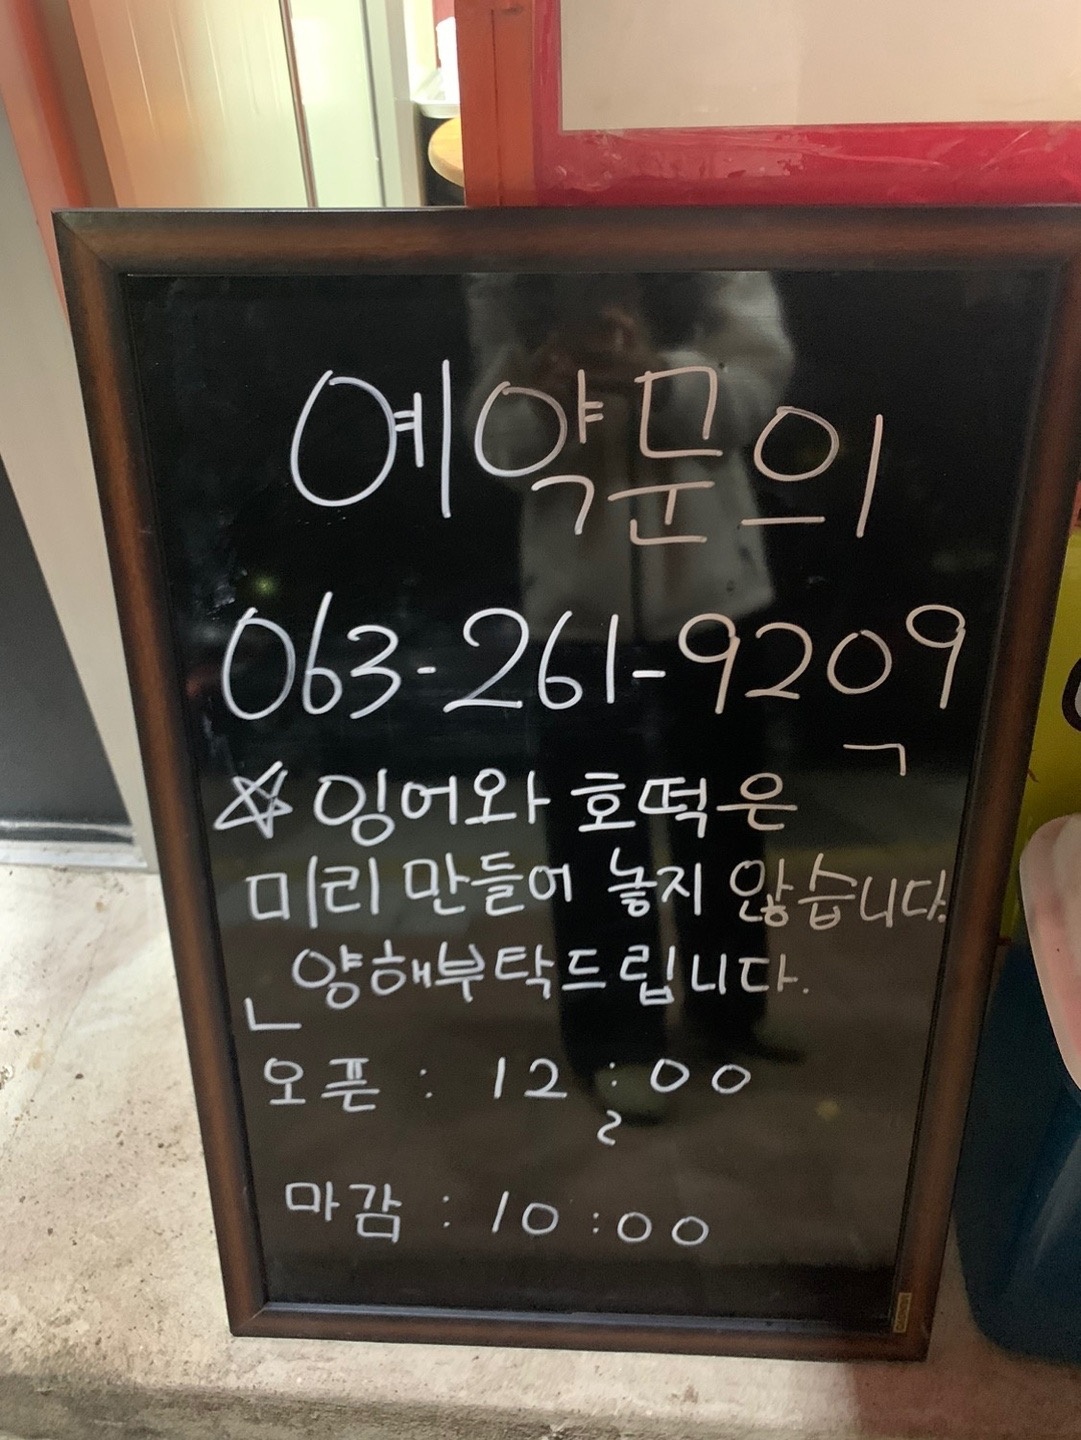 예약문의
063-261-9209
☆ 잉어와 호떡은
미리 만들어 놓지 않습니다.
양해부탁드립니다.
오픈 : 12 : 00
~
마감 : 10 : 00